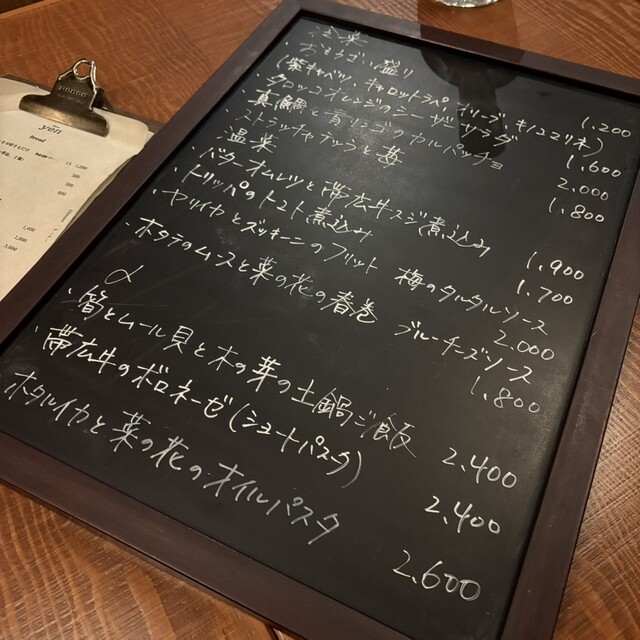 冷菜
・おもばい盛り
(紫キャベツ、キャロットラペ、オリーブ、キノコマリネ) 1.200
・タロッコオレンジのシーザーサラダ 1.600
・真鯛と青リンゴのカルパッチョ 2.000
・ストラッチャテッラと苺 1.800
温菜
・バターオムレツと帯広牛スジ煮込み 1.900
・トリッパのトマト煮込み 1.700
・ヤリイカとズッキーニのフリット 梅のタルタルソース 2.000
・ホタテのムースと菜の花の春巻 ブルーチーズソース 1.800
〆
・筍とムール貝と木の芽の土鍋ご飯 2.400
・帯広牛のボロネーゼ(ショートパスタ) 2.400
ホタルイカと菜の花のオイルパスタ 2.600
Bread